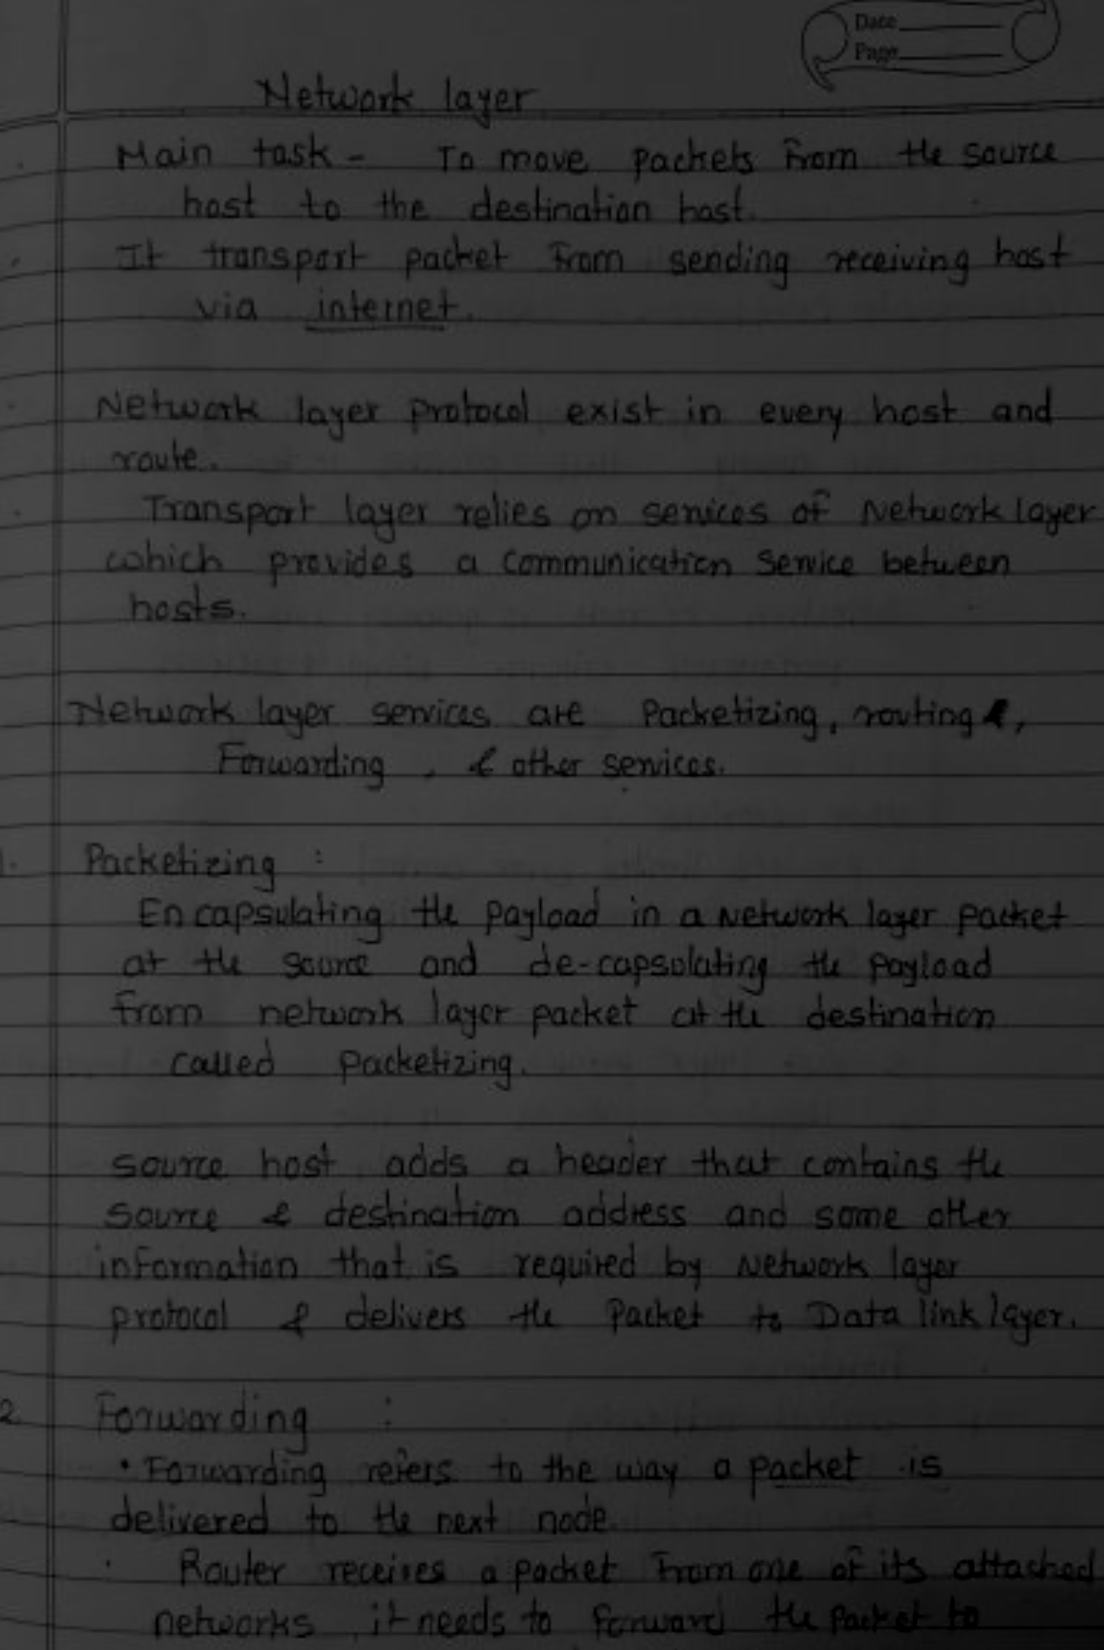 Date
Page
Network layer
Main task - To move packets from the source
host to the destination host.
It transport packet from sending receiving host
via internet.
Network layer protocol exist in every host and
route.
Transport layer relies on services of Network layer
which provides a communication service between
hosts.
Network layer services are Packetizing, routing,
Forwarding, & other services.
1. Packetizing :
Encapsulating the payload in a network layer packet
at the source and de-capsolating the payload
from network layer packet at the destination
called packetizing.
source host adds a header that contains the
source & destination address and some other
information that is required by network layer
protocol & delivers the packet to Data link layer.
2 Forwarding :
• Forwarding refers to the way a packet is
delivered to the next node.
• Router receives a packet from one of its attached
networks, it needs to forward the packet to